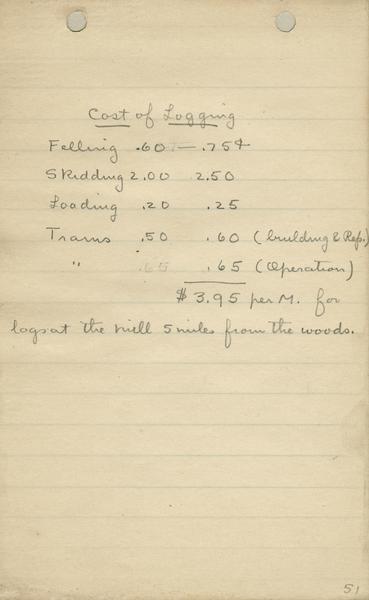 Cost of Logging
Felling .60 — .75¢
Skidding 2.00 2.50
Loading .20 .25
Trams .50 .60 (building & Rep.)
" .65 .65 (Operation)
$3.95 per M. for
logs at the mill 5 miles from the woods.
51